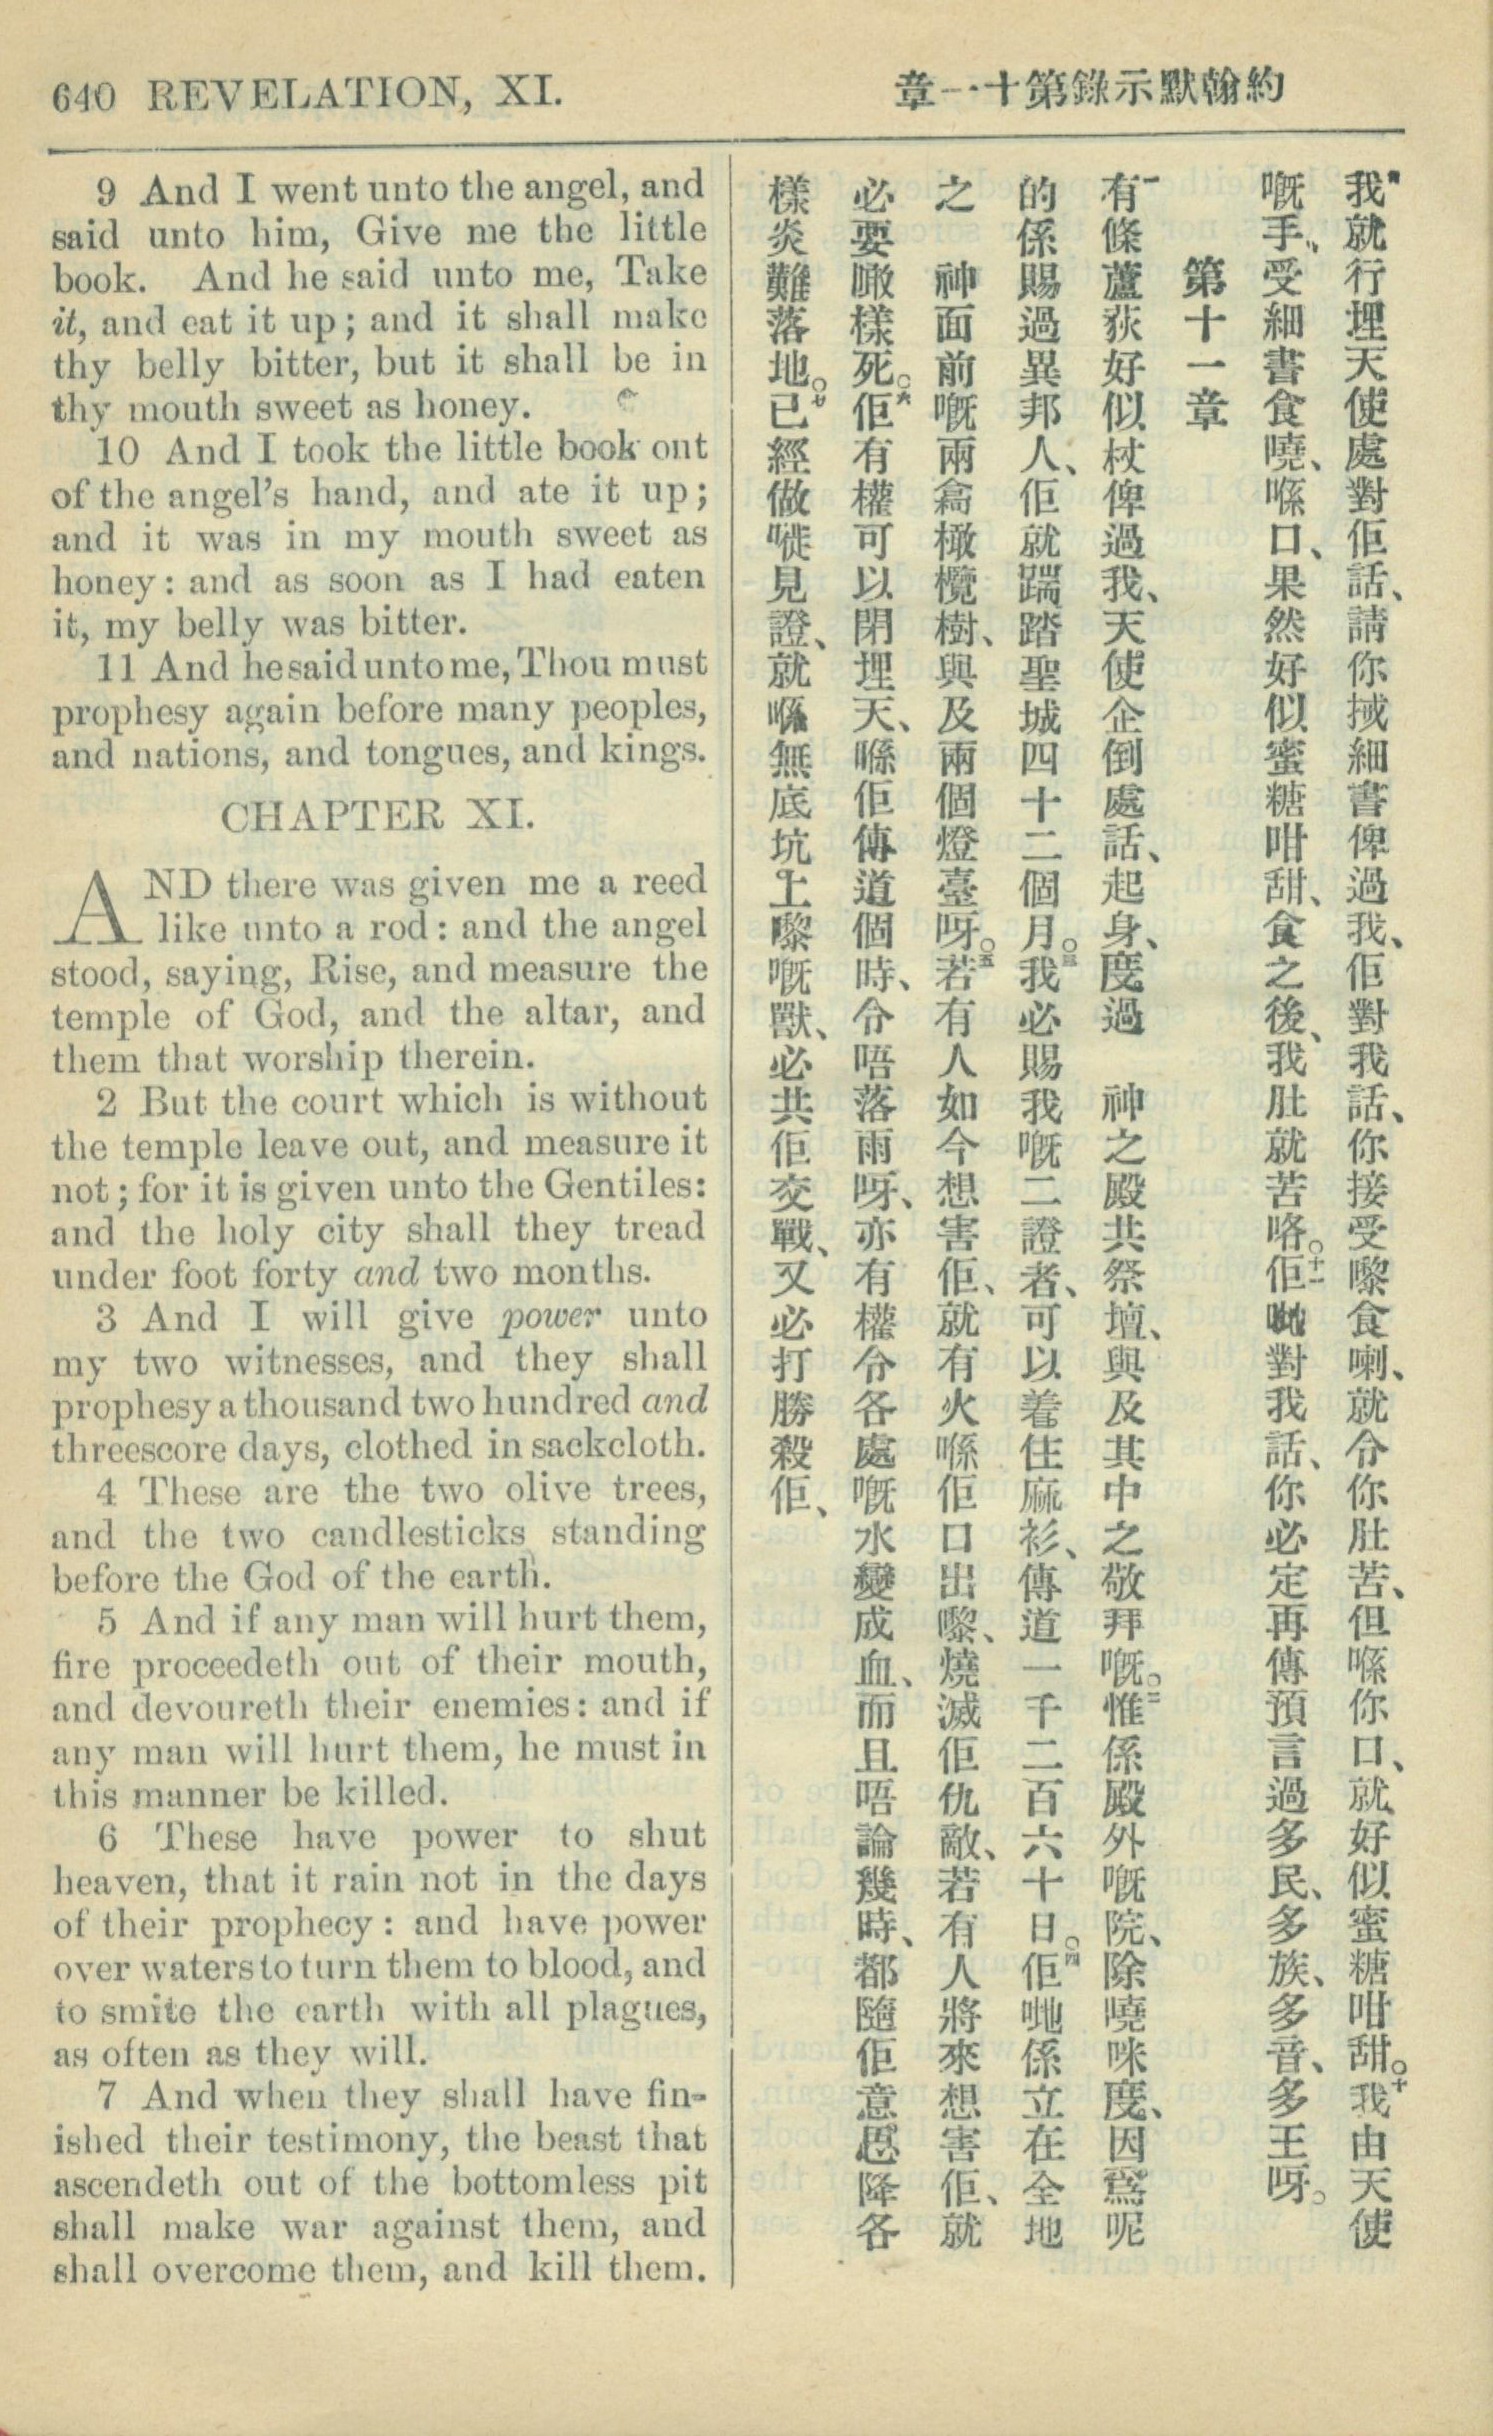 640 REVELATION, XI.
約翰默示錄第十一章
9 And I went unto the angel, and
said unto him, Give me the little
book. And he said unto me, Take
it, and eat it up; and it shall make
thy belly bitter, but it shall be in
thy mouth sweet as honey.
10 And I took the little book out
of the angel's hand, and ate it up;
and it was in my mouth sweet as
honey: and as soon as I had eaten
it, my belly was bitter.
11 And he said unto me, Thou must
prophesy again before many peoples,
and nations, and tongues, and kings.
CHAPTER XI.
AND there was given me a reed
like unto a rod: and the angel
stood, saying, Rise, and measure the
temple of God, and the altar, and
them that worship therein.
2 But the court which is without
the temple leave out, and measure it
not; for it is given unto the Gentiles:
and the holy city shall they tread
under foot forty and two months.
3 And I will give power unto
my two witnesses, and they shall
prophesy a thousand two hundred and
threescore days, clothed in sackcloth.
4 These are the two olive trees,
and the two candlesticks standing
before the God of the earth.
5 And if any man will hurt them,
fire proceedeth out of their mouth,
and devoureth their enemies: and if
any man will hurt them, he must in
this manner be killed.
6 These have power to shut
heaven, that it rain not in the days
of their prophecy: and have power
over waters to turn them to blood, and
to smite the earth with all plagues,
as often as they will.
7 And when they shall have fin-
ished their testimony, the beast that
ascendeth out of the bottomless pit
shall make war against them, and
shall overcome them, and kill them.
我就行埋天使處對佢話、請你放細書俾過我、佢對我話、你接受嚟食喇、就令你肚苦、但喺你口、就好似蜜糖咁甜。十我由天使
嘅手、受細書食嘵、喺口、果然好似蜜糖咁甜、食之後、我肚就苦咯。十一佢哋對我話、你必定再傳預言過多民、多族、多音、多王呀。
第十一章
一有條蘆荻好似杖俾過我、天使企倒處話、起身、度過 神之殿共祭壇、與及其中之敬拜嘅。二惟係殿外嘅院、除嘵咪度、因爲呢
的係賜過異邦人、佢就踹踏聖城四十二個月。三我必賜我嘅二證者、可以着住麻衫、傳道一千二百六十日。四佢哋係立在全地
之 神面前嘅兩喬橄欖樹、與及兩個燈臺呀。五若有人如今想害佢、就有火喺佢口出嚟、燒滅佢仇敵、若有人將來想害佢、就
必要噉樣死。六佢有權可以閉埋天、喺佢傳道個時、令唔落雨呀、亦有權令各處嘅水變成血、而且唔論幾時、都隨佢意思降各
樣炎難落地。七已經做嘥見證、就喺無底坑上嚟嘅獸、必共佢交戰、又必打勝殺佢、